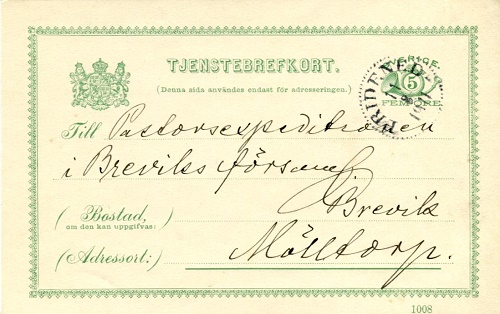 TJENSTEBREFKORT.
(Denna sida användes endast för adresseringen.)
SVERIGE
5
FEM ÖRE
FRIDENE
Till Pastorsexpeditionen
i Breviks församl.
(Bostad,
om den kan uppgifvas:) Brevik
(Adressort:) Mölltorp.
1008